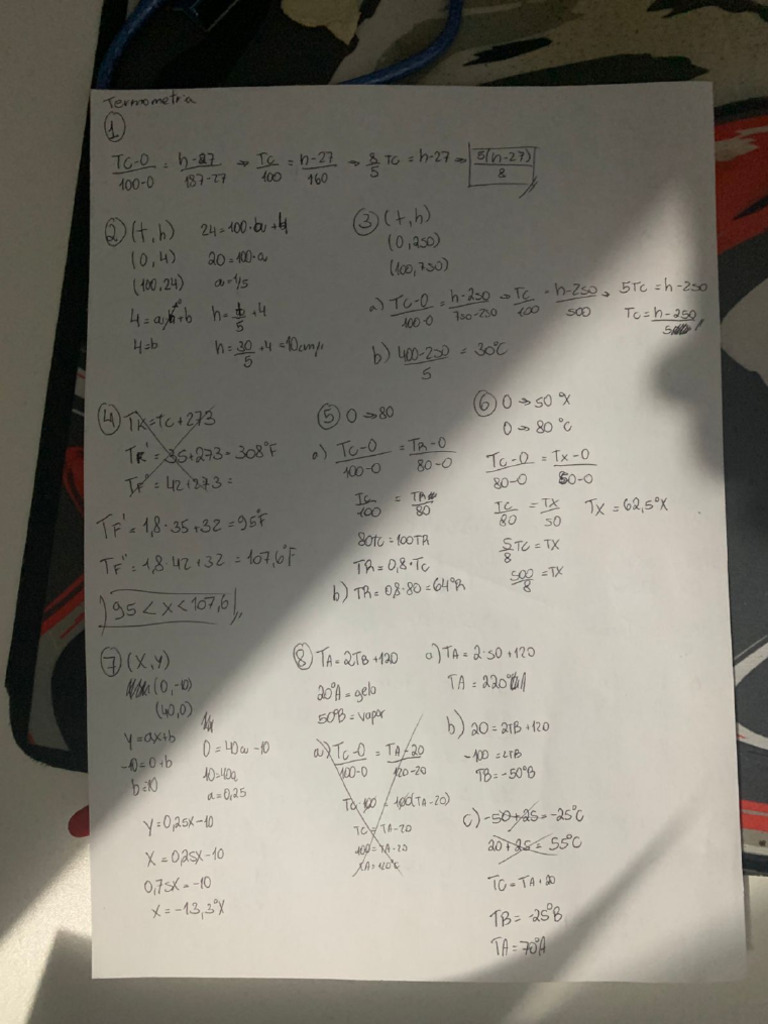 Termometria
①
TC-0/100-0 = h-27/187-27 → TC/100 = h-27/160 → 8/5 TC = h-27 → 5(h-27)/8
② (t,h) 24=100·a+4
(0,4) 20=100·a
(100,24) a=1/5
4=a·0+b h=t/5+4
4=b h=30/5+4=10cm
③ (t,h)
(0,250)
(100,750)
a) TC-0/100-0 = h-250/750-250 → TC/100 = h-250/500 → 5TC=h-250
TC=h-250/5
b) 400-250/5 = 30°C
④ TK=TC+273
TK'=35+273=308°F
TF''=42+273=
TF'=1,8·35+32=95°F
TF''=1,8·42+32=107,6°F
95<X<107,6
⑤ 0→80
a) TC-0/100-0 = TR-0/80-0
TC/100 = TR/80
80TC=100TR
TR=0,8·TC
b) TR=0,8·80=64°R
⑥ 0→50°X
0→80°C
TC-0/80-0 = TX-0/50-0
TC/80 = TX/50 TX=62,5°X
5/8 TC=TX
500/8 =TX
⑦ (X,Y)
(0,-10)
(40,0)
Y=ax+b
-10=0+b 0=40a-10
b=10 10=40a
a=0,25
Y=0,25X-10
X=0,25X-10
0,75X=-10
X=-13,3°X
⑧ TA=2TB+120
20°A=gelo
50°B=vapor
a) TC-0/100-0 = TA-20/120-20
TC·100=100(TA-20)
TC=TA-20
100=TA-20
TA=120°C
a) TA=2·50+120
TA=220°A
b) 20=2TB+120
-100=2TB
TB=-50°B
c) -50+25=-25°C
20+25=55°C
TC=TA+20
TB=-25°B
TA=70°A